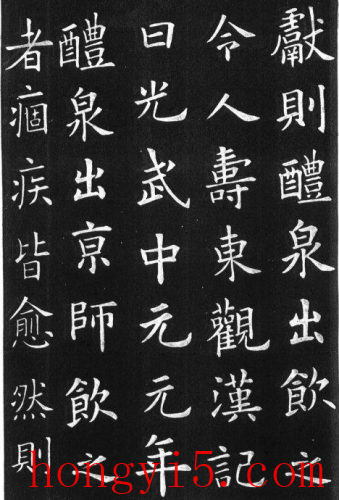 獻則醴泉出飲之
令人壽東觀漢記
曰光武中元元年
醴泉出京師飲之
者痼疾皆愈然則
hongyi5.com